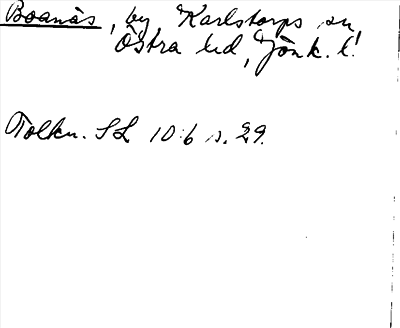 Boanäs, by, Karlstorps sn,
Östra hd, Jönk. l.
Tolkn. SL 10:6 s. 29.